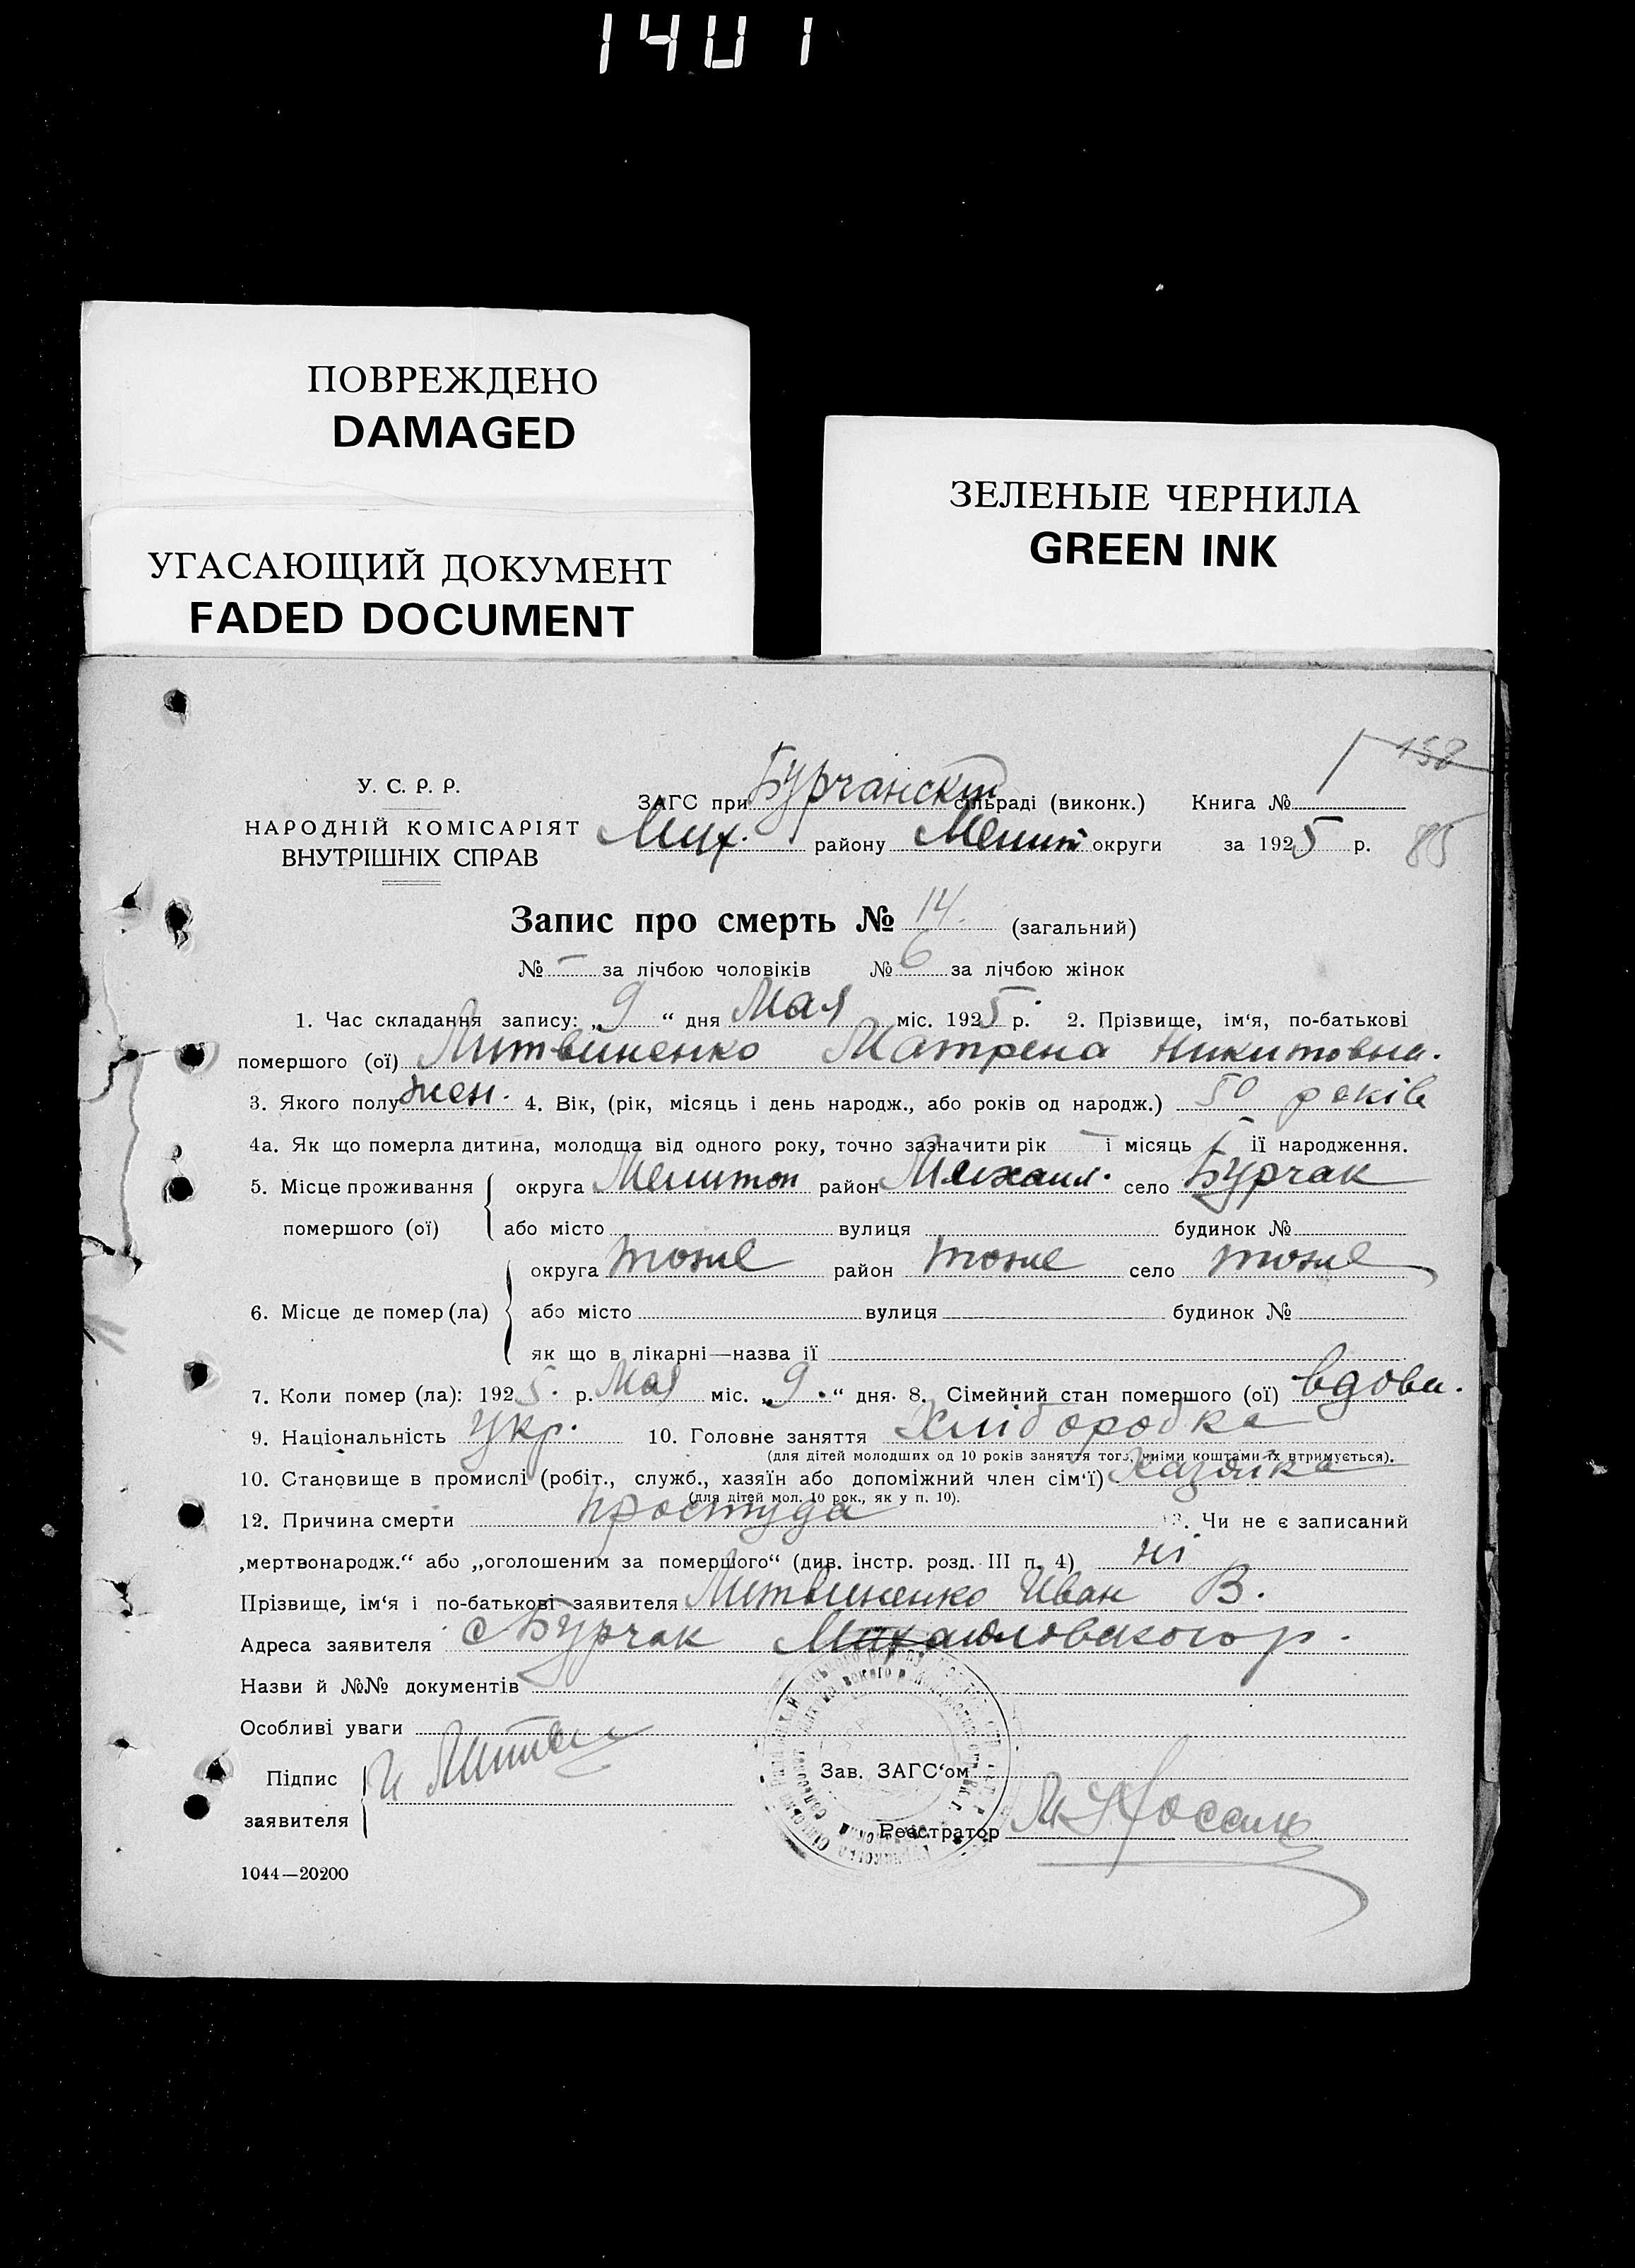 1401
ПОВРЕЖДЕНО
DAMAGED
УГАСАЮЩИЙ ДОКУМЕНТ
FADED DOCUMENT
ЗЕЛЕНЫЕ ЧЕРНИЛА
GREEN INK
158
У. С. Р. Р.
НАРОДНІЙ КОМІСАРІЯТ
ВНУТРІШНІХ СПРАВ
ЗАГС при Бурчанскій сільраді (виконк.) Книга № 1
Мих. району Мелит округи за 1925 р. 85
Запис про смерть № 14. (загальний)
№ — за лічбою чоловіків № 6 за лічбою жінок
1. Час складання запису: „9“ дня Мая міс. 1925 р. 2. Прізвище, ім‘я, по-батькові
помершого (ої) Литвиненко Матрена Никитовна.
3. Якого полу жен. 4. Вік, (рік, місяць і день народж., або років од народж.) 50 років
4а. Як що померла дитина, молодща від одного року, точно зазначити рік — і місяць — її народження.
5. Місце проживання округа Мелитоп район Михаил. село Бурчак
помершого (ої) або місто вулиця будинок №
округа тоже район тоже село тоже
6. Місце де помер (ла) або місто вулиця будинок №
як що в лікарні—назва її
7. Коли помер (ла): 1925. р. Мая міс. „9.“ дня. 8. Сімейний стан помершого (ої) вдова.
9. Національність Укр. 10. Головне заняття Хліборобка
(для дітей молодших од 10 років заняття того, чиїми коштами їх втримується).
10. Становище в промислі (робіт., служб., хазяїн або допоміжний член сім‘ї) Хазяйка
(для дітей мол. 10 рок., як у п. 10).
12. Причина смерти простуда 13. Чи не є записаний
„мертвонародж.“ або „оголошеним за помершого“ (див. інстр. розд. III п. 4) ні
Прізвище, ім‘я і по-батькові заявителя Литвиненко Иван В.
Адреса заявителя с Бурчак Михайловского р.
Назви й №№ документів
Особливі уваги
Підпис
заявителя И Литвин
Зав. ЗАГС‘ом
Реєстратор
1044—20200